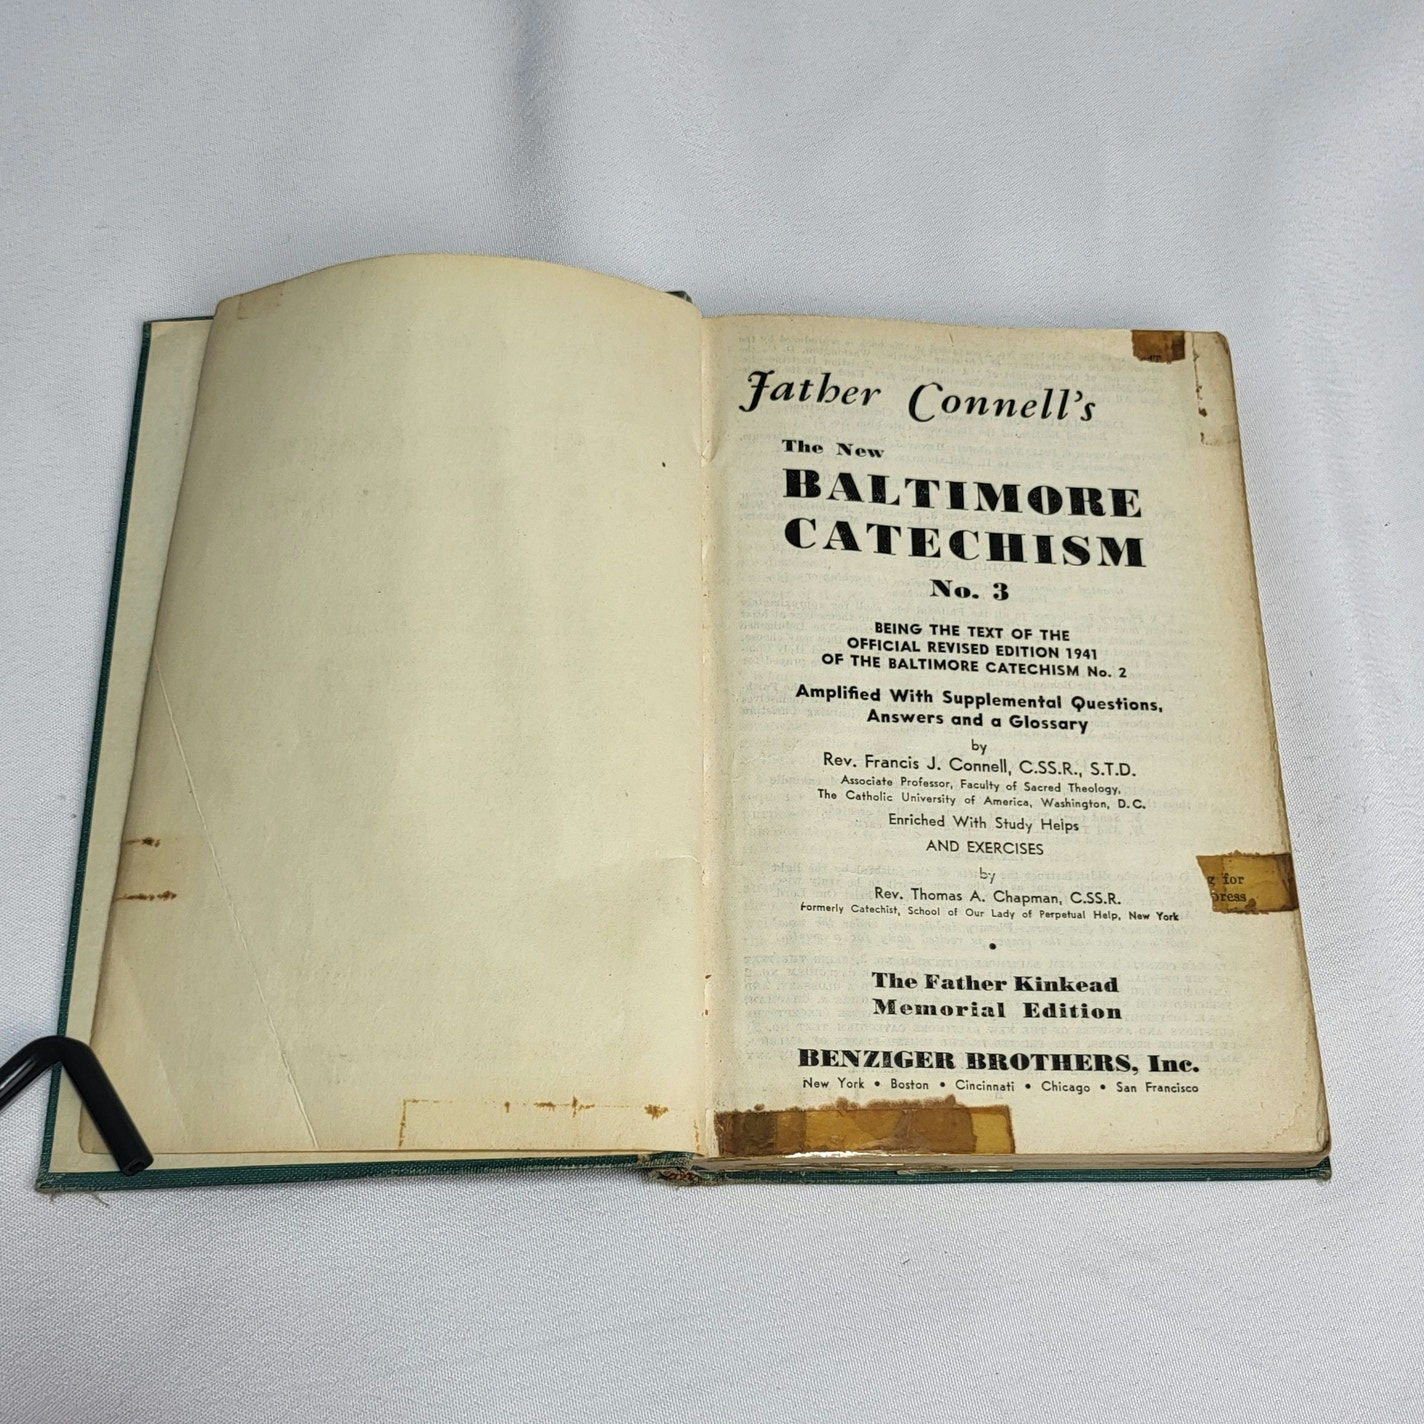 Father Connell's
The New
BALTIMORE
CATECHISM
No. 3
BEING THE TEXT OF THE
OFFICIAL REVISED EDITION 1941
OF THE BALTIMORE CATECHISM No. 2
Amplified With Supplemental Questions,
Answers and a Glossary
by
Rev. Francis J. Connell, C.SS.R., S.T.D.
Associate Professor, Faculty of Sacred Theology,
The Catholic University of America, Washington, D.C.
Enriched With Study Helps
AND EXERCISES
by
Rev. Thomas A. Chapman, C.SS.R.
Formerly Catechist, School of Our Lady of Perpetual Help, New York
for
The Father Kinkead
Memorial Edition
BENZIGER BROTHERS, Inc.
New York • Boston • Cincinnati • Chicago • San Francisco